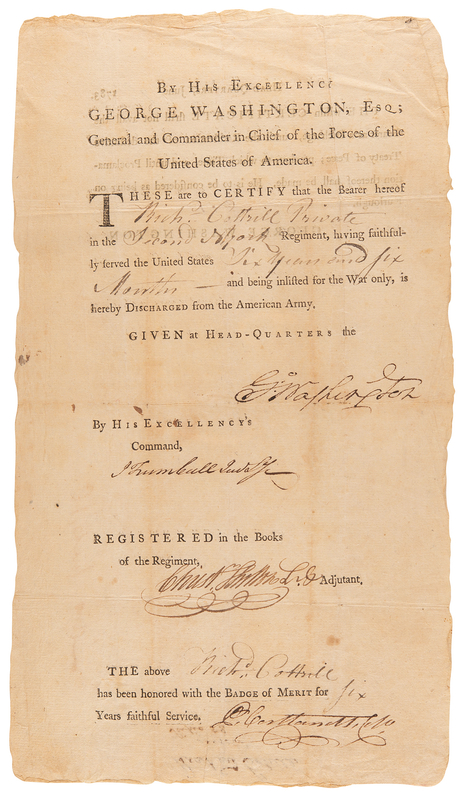 By His Excellency
GEORGE WASHINGTON, Esq;
General and Commander in Chief of the Forces of the
United States of America.
THESE are to CERTIFY that the Bearer hereof
Richd. Cottrill Private
in the Second NYork Regiment, having faithful-
ly served the United States Six Years and six
Months and being inlisted for the War only, is
hereby DISCHARGED from the American Army.
GIVEN at HEAD-QUARTERS the
Go Washington
By HIS EXCELLENCY'S
Command,
J Trumbull Junr Sy
REGISTERED in the Books
of the Regiment,
Adjutant.
THE above Richd. Cottrill
has been honored with the BADGE of MERIT for six
Years faithful Service. P. Cortlandt, Colo